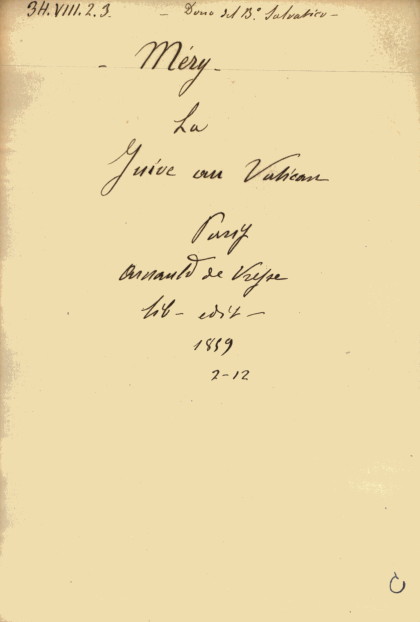 34.VIII.2.3. - Dono del B.º Salvatico -
- Méry -
La
Juive au Vatican
Paris
Arnauld de Vresse
lib - edit -
1859
2-12